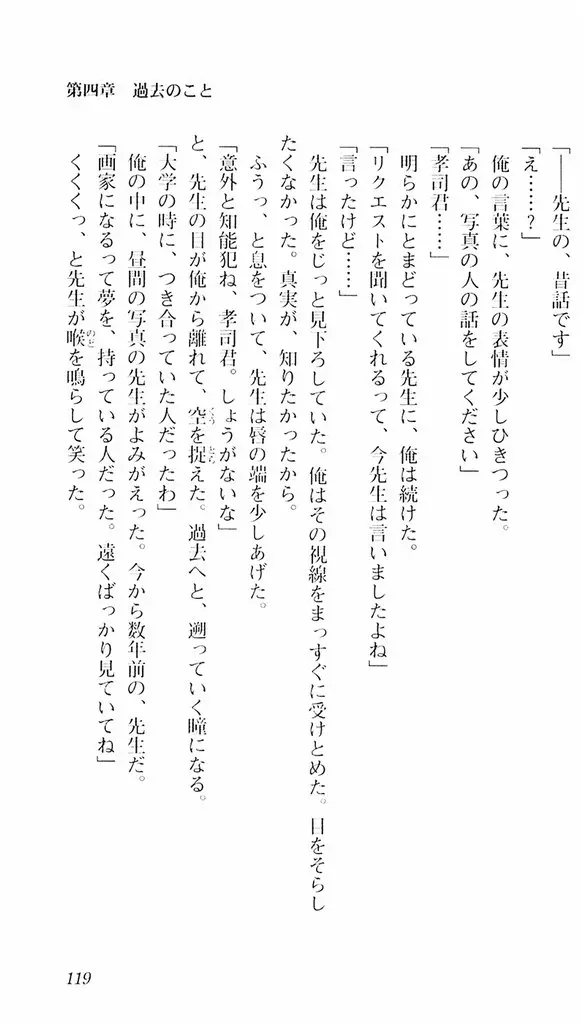 第四章　過去のこと
「――先生の、昔話です」
「え……？」
　俺の言葉に、先生の表情が少しひきつった。
「あの、写真の人の話をしてください」
「孝司君……」
　明らかにとまどっている先生に、俺は続けた。
「リクエストを聞いてくれるって、今先生は言いましたよね」
「言ったけど……」
　先生は俺をじっと見下ろしていた。俺はその視線をまっすぐに受けとめた。目をそらし
たくなかった。真実が、知りたかったから。
　ふうっ、と息をついて、先生は唇の端を少しあげた。
「意外と知能犯ね、孝司君。しょうがないな」
と、先生の目が俺から離れて、空（くう）を捉（とら）えた。過去へと、遡っていく瞳になる。
「大学の時に、つき合っていた人だったわ」
　俺の中に、昼間の写真の先生がよみがえった。今から数年前の、先生だ。
「画家になるって夢を、持っている人だった。遠くばっかり見ていてね」
くくくっ、と先生が喉（のど）を鳴らして笑った。
119